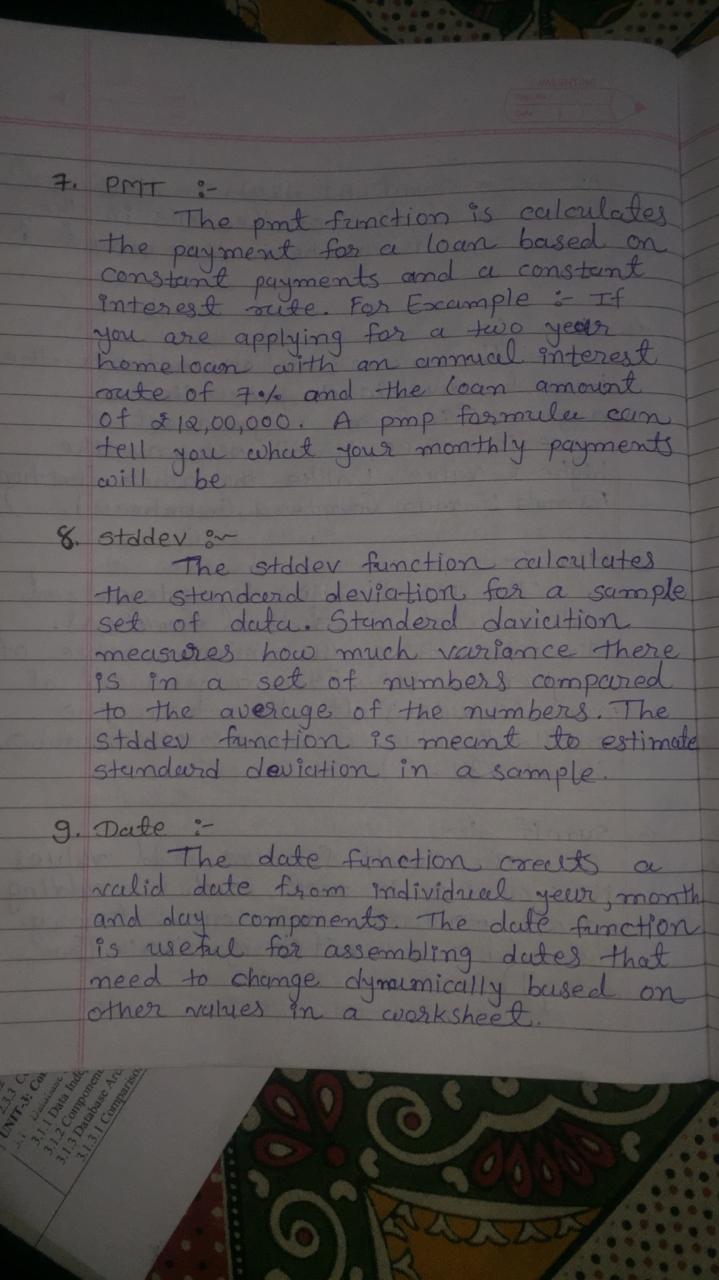 7. PMT :-
The pmt function is calculates
the payment for a loan based on
constant payments and a constant
interest rate. For Example :- If
you are applying for a two year
homeloan with an annual interest
rate of 7% and the loan amount
of ₹12,00,000. A pmp formula can
tell you what your monthly payments
will be
8. stddev :-
The stddev function calculates
the standard deviation for a sample
set of data. Standerd daviation
measures how much variance there
is in a set of numbers compared
to the average of the numbers. The
stddev function is meant to estimate
standard deviation in a sample.
9. Date :-
The date function creats a
valid date from individual year, month
and day components. The date function
is useful for assembling dates that
need to change dynamically based on
other values in a worksheet.
UNIT-3:
3.1.1 Data
3.1.2 Component
3.1.3 Database Arc
3.1.3.1 Compariso